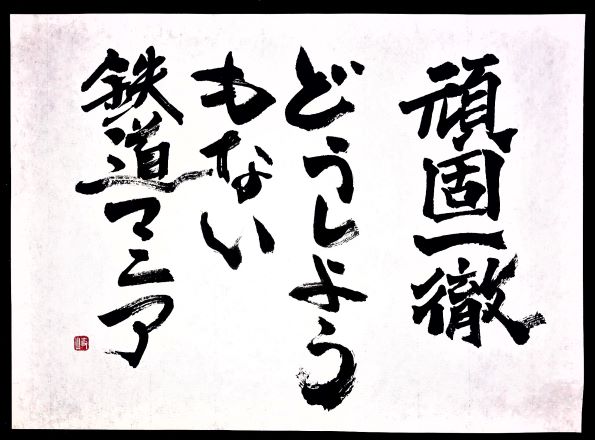 頑固一徹
どうしよう
もない
鉄道マニア